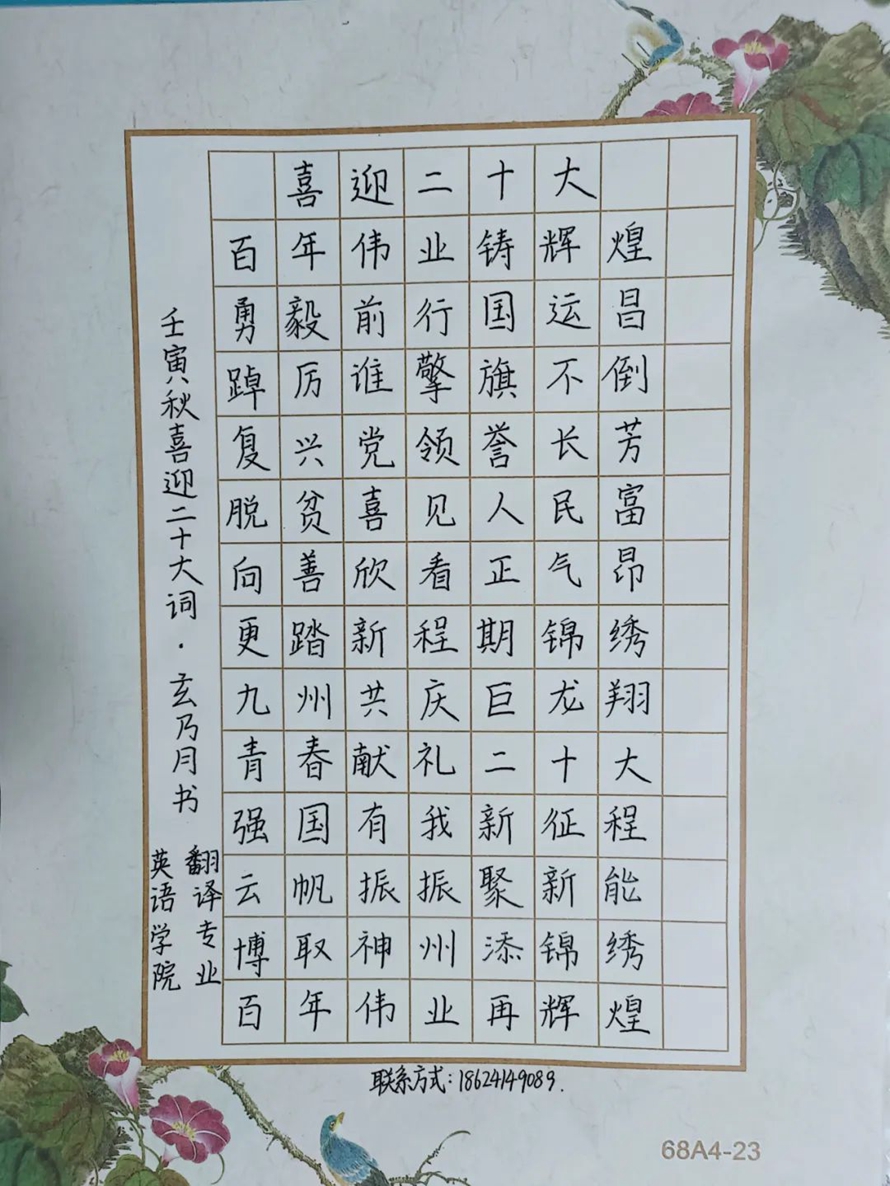 喜迎二十大
百年伟业铸辉煌
勇毅前行国运昌
踔厉谁擎旗不倒
复兴党领誉长芳
脱贫喜见人民富
向善欣看正气昂
更踏新程期锦绣
九州共庆巨龙翔
青春献礼二十大
强国有我新征程
云帆振振聚新能
博取神州添锦绣
百年伟业再辉煌
壬寅秋喜迎二十大词·玄乃月书
翻译专业
英语学院
联系方式:18624149089.
68A4-23